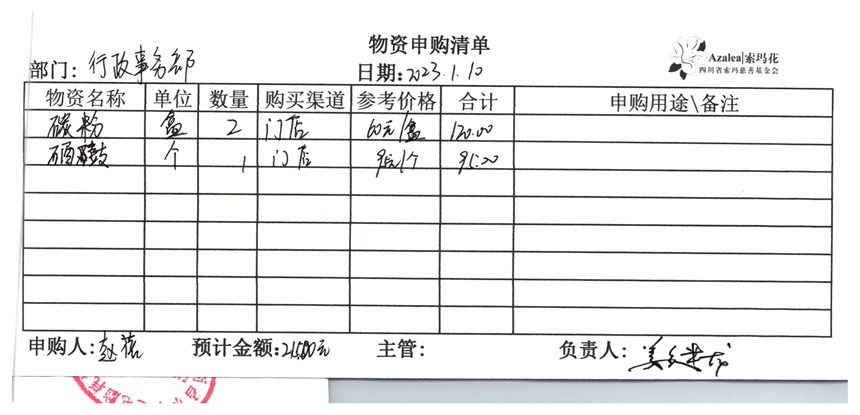 物资申购清单
Azalea|索玛花
四川省索玛慈善基金会
部门：行政事务部 日期：2023.1.10
物资名称 单位 数量 购买渠道 参考价格 合计 申购用途\备注
碳粉 盒 2 门店 60元/盒 120.00
硒鼓 个 1 门店 95元/个 95.00
申购人： 预计金额：215.00元 主管： 负责人：